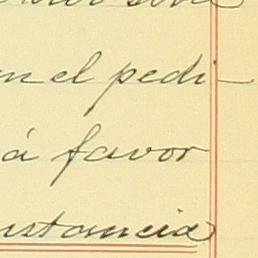 en el pedi-
á favor
nstancia